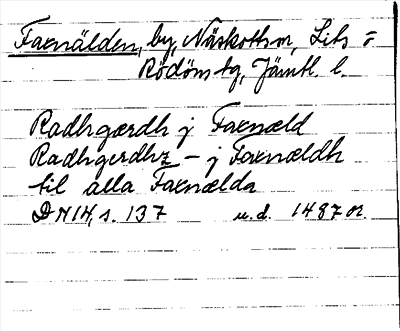 Faxnälden, by, Näskotts sn, Lits o
Rödöns tg, Jämtl. l.
Radhgærdh j Faxnæld
Radhgerdhz - j Faxnældh
til alla Faxnælda
DN 14, s. 137 u.d. 1487 or.